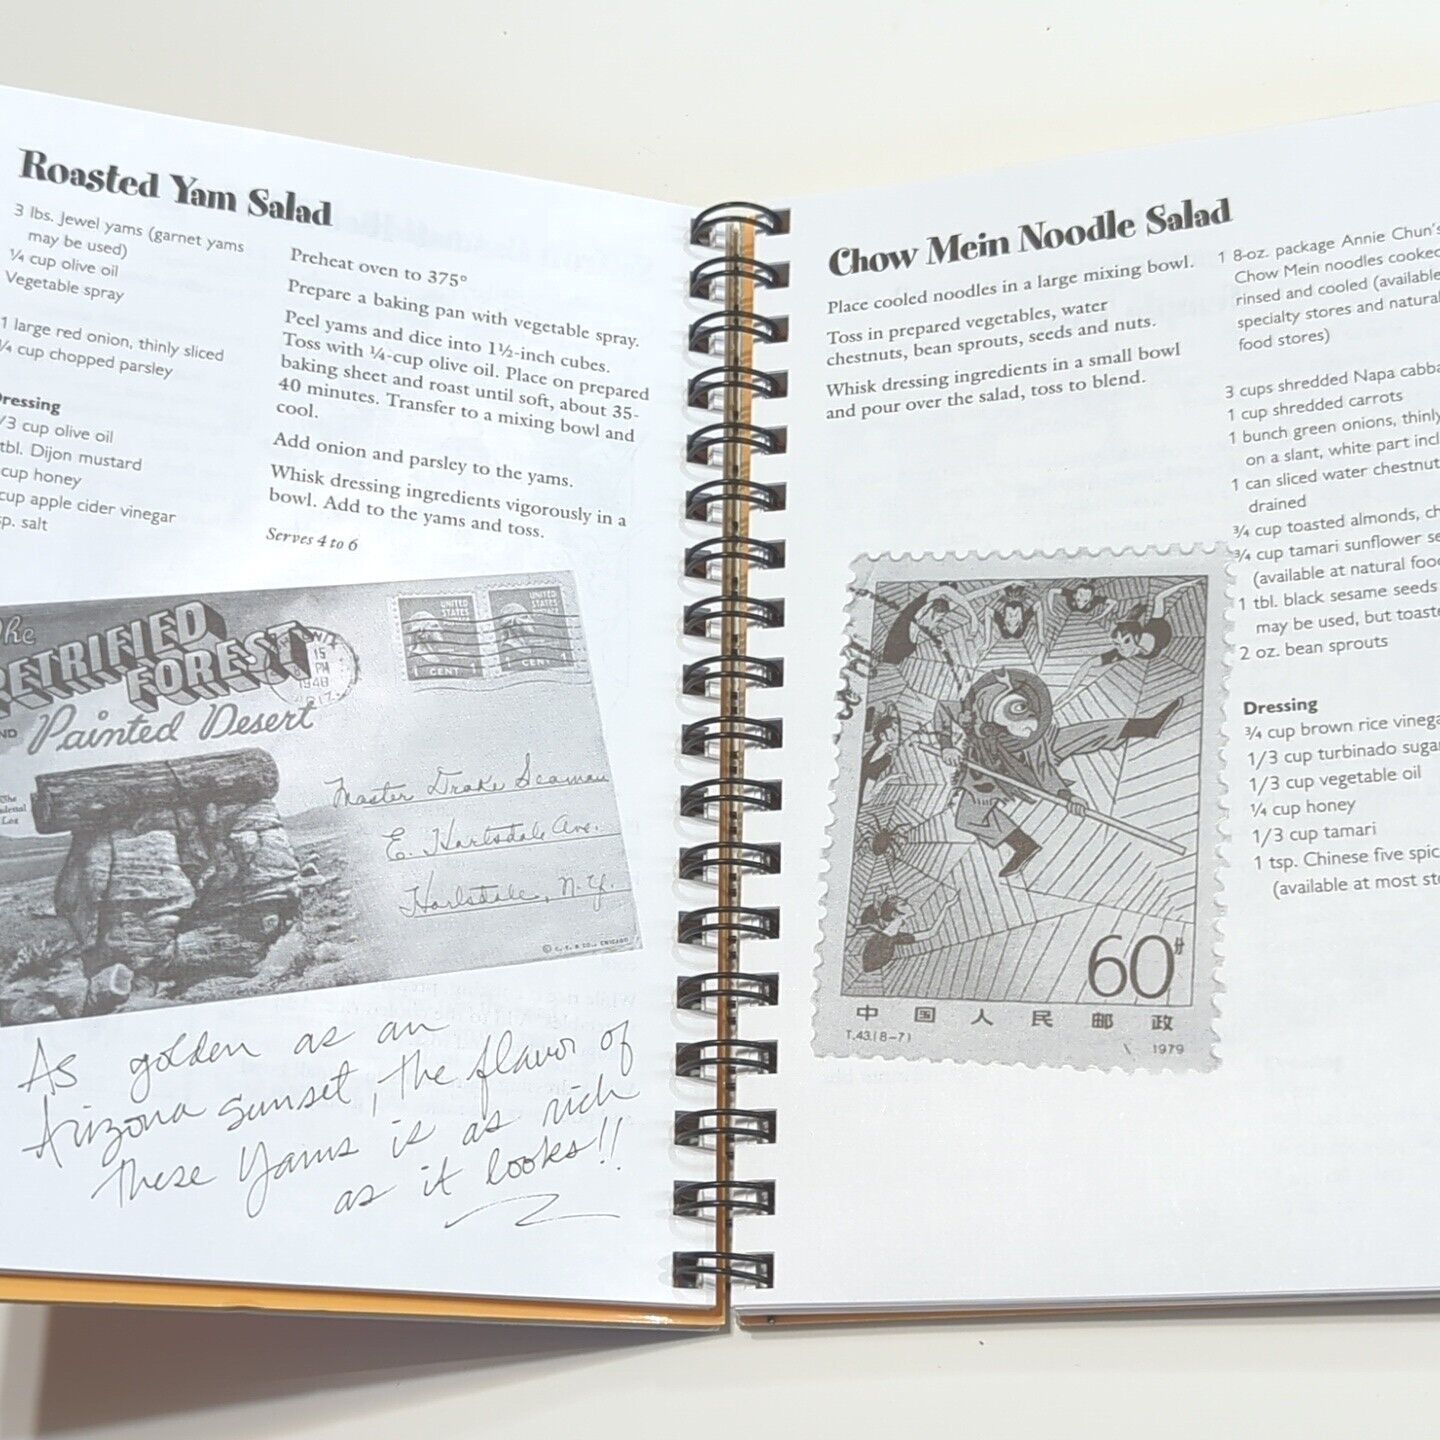 Roasted Yam Salad
3 lbs. Jewel yams (garnet yams
may be used)
¼ cup olive oil
Vegetable spray
1 large red onion, thinly sliced
¼ cup chopped parsley
Dressing
1/3 cup olive oil
tbl. Dijon mustard
cup honey
cup apple cider vinegar
salt
Preheat oven to 375°
Prepare a baking pan with vegetable spray.
Peel yams and dice into 1½-inch cubes.
Toss with ¼-cup olive oil. Place on prepared
baking sheet and roast until soft, about 35-
40 minutes. Transfer to a mixing bowl and
cool.
Add onion and parsley to the yams.
Whisk dressing ingredients vigorously in a
bowl. Add to the yams and toss.
Serves 4 to 6
The
PETRIFIED
FOREST
AND Painted Desert
15
PM
1948
UNITED
STATES
1 CENT 1
UNITED
STATES
1 CENT 1
The
Log
Master Drake Seaman
E. Hartsdale Ave.
Hartsdale, N.Y.
© C. T. & Co., CHICAGO
As golden as an
Arizona sunset, the flavor of
these Yams is as rich
as it looks!!
Chow Mein Noodle Salad
Place cooled noodles in a large mixing bowl.
Toss in prepared vegetables, water
chestnuts, bean sprouts, seeds and nuts.
Whisk dressing ingredients in a small bowl
and pour over the salad, toss to blend.
1 8-oz. package Annie Chun's
Chow Mein noodles cooked
rinsed and cooled (available
specialty stores and natural
food stores)
3 cups shredded Napa
1 cup shredded carrots
1 bunch green onions, thinly
on a slant, white part
1 can sliced water
drained
¾ cup toasted almonds,
¾ cup tamari sunflower
(available at natural
1 tbl. black sesame seeds
may be used, but
2 oz. bean sprouts
Dressing
¾ cup brown rice
1/3 cup turbinado
1/3 cup vegetable oil
¼ cup honey
1/3 cup tamari
1 tsp. Chinese five
(available at most
60分
中国人民邮政
T.43.(8-7)
1979